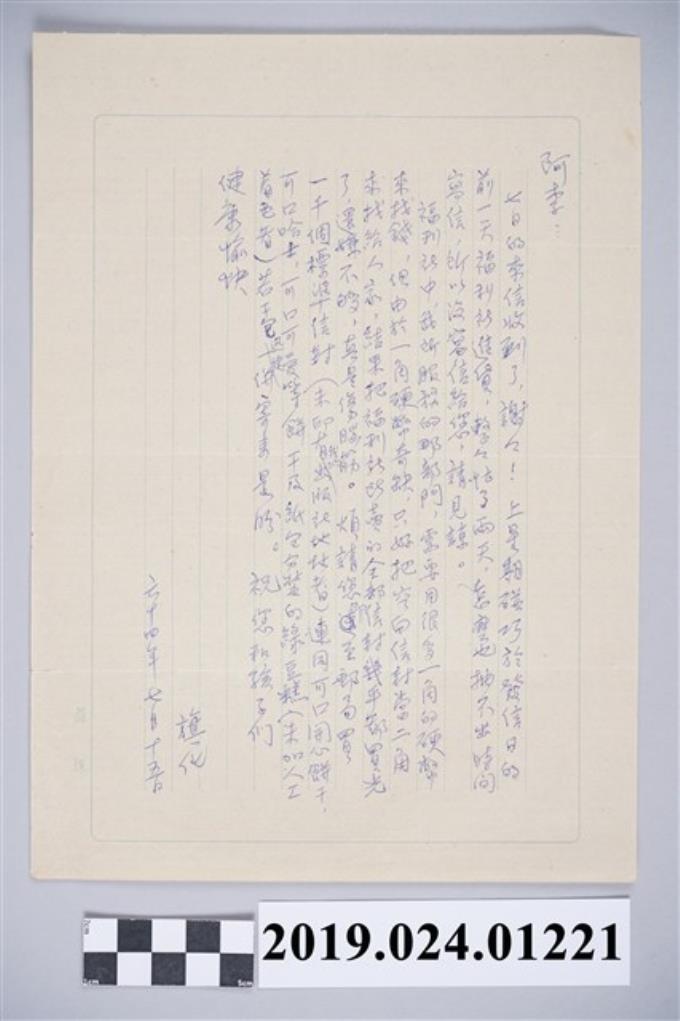 阿李：
七日的來信收到了，謝々！上星期碰巧於發信日的
前一天福利社進貨，整々忙了兩天，怎麼也抽不出時間
寫信，所以沒寫信給您，請見諒。
福利社中，我所服務的那部門，需要用很多一角的硬幣
來找錢，但由於一角硬幣奇缺，只好把空白信封當二角
來找給人家，結果把福利社所賣的全部信封幾乎都買光
了，還嫌不夠，真是傷腦筋。煩請您至郵局買
一千個標準信封（未印有出版社地址者）連同可口開心餅干、
可口哈士、可口可愛等餅干及紙包分裝的綠豆糕（未加人工
著色者）若干包一併寄來是盼。祝您和孩子們
健康愉快
旗化
六十四年七月十五日
2019.024.01221